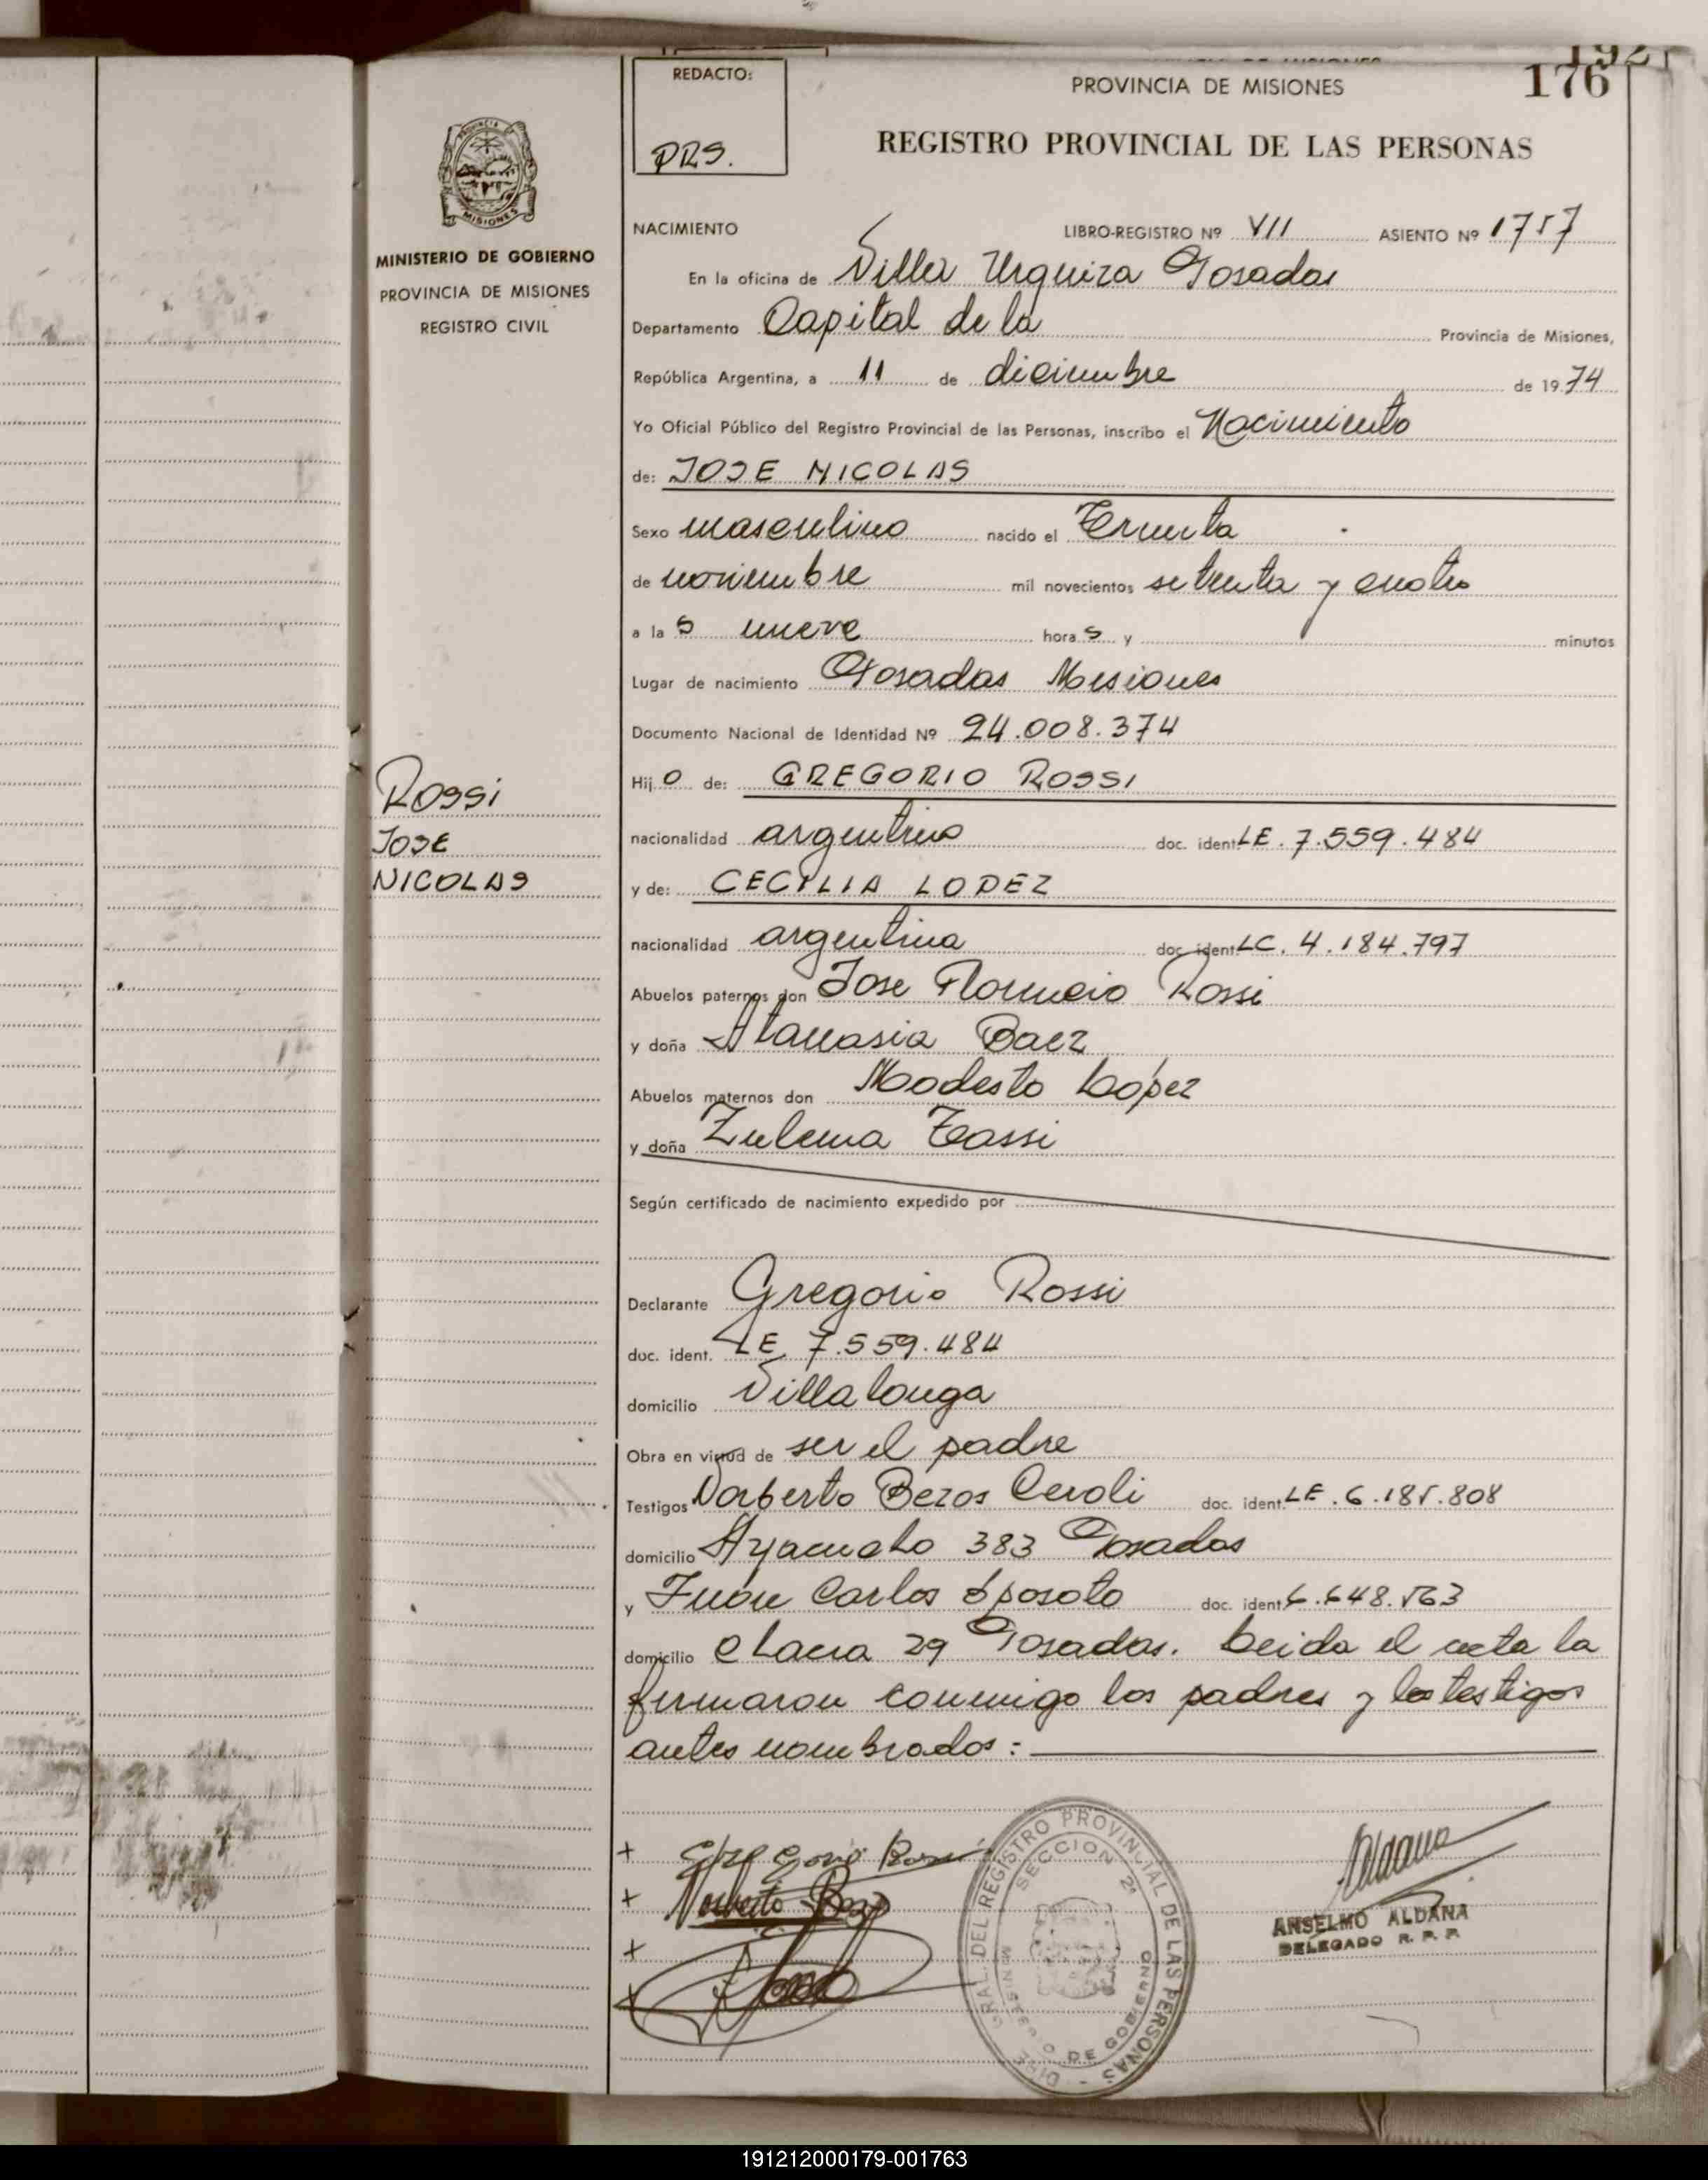 192
176
REDACTO:
PRS.
PROVINCIA DE MISIONES
REGISTRO PROVINCIAL DE LAS PERSONAS
PROVINCIA DE
MISIONES
MINISTERIO DE GOBIERNO
PROVINCIA DE MISIONES
REGISTRO CIVIL
ROSSI
JOSE
NICOLAS
NACIMIENTO LIBRO-REGISTRO Nº VII ASIENTO Nº 1757
En la oficina de Villa Urquiza Posadas
Departamento Capital de la Provincia de Misiones,
República Argentina, a 11 de diciembre de 1974
Yo Oficial Público del Registro Provincial de las Personas, inscribo el Nacimiento
de: JOSE NICOLAS
Sexo masculino nacido el Treinta
de noviembre mil novecientos setenta y cuatro
a la s nueve hora s y minutos
Lugar de nacimiento Posadas Misiones
Documento Nacional de Identidad Nº 24.008.374
Hij o de: GREGORIO ROSSI
nacionalidad argentino doc. ident. LE. 7.559.484
y de: CECILIA LOPEZ
nacionalidad argentina doc. ident. LC. 4.184.797
Abuelos paternos don Jose Rossi
y doña Atanasia Baez
Abuelos maternos don Modesto López
y doña Zulema Tassi
Según certificado de nacimiento expedido por
Declarante Gregorio Rossi
doc. ident. LE 7.559.484
domicilio Villalonga
Obra en virtud de ser el padre
Testigos Norberto Bezos Ceroli doc. ident. LE. 6.185.808
domicilio Ayacucho 383 Posadas
y Juan Carlos doc. ident. 6.648.563
domicilio Chacra 29 Posadas. Leida el acta la
firmaron conmigo los padres y los testigos
antes nombrados:
+
+ Norberto
+
+
DIRE GRAL. DEL REGISTRO PROVINCIAL DE LAS PERSONAS -
SECCION 2ª
MINISTERIO DE GOBIERNO
Aldana
ANSELMO ALDANA
DELEGADO R. P. P.
191212000179-001763